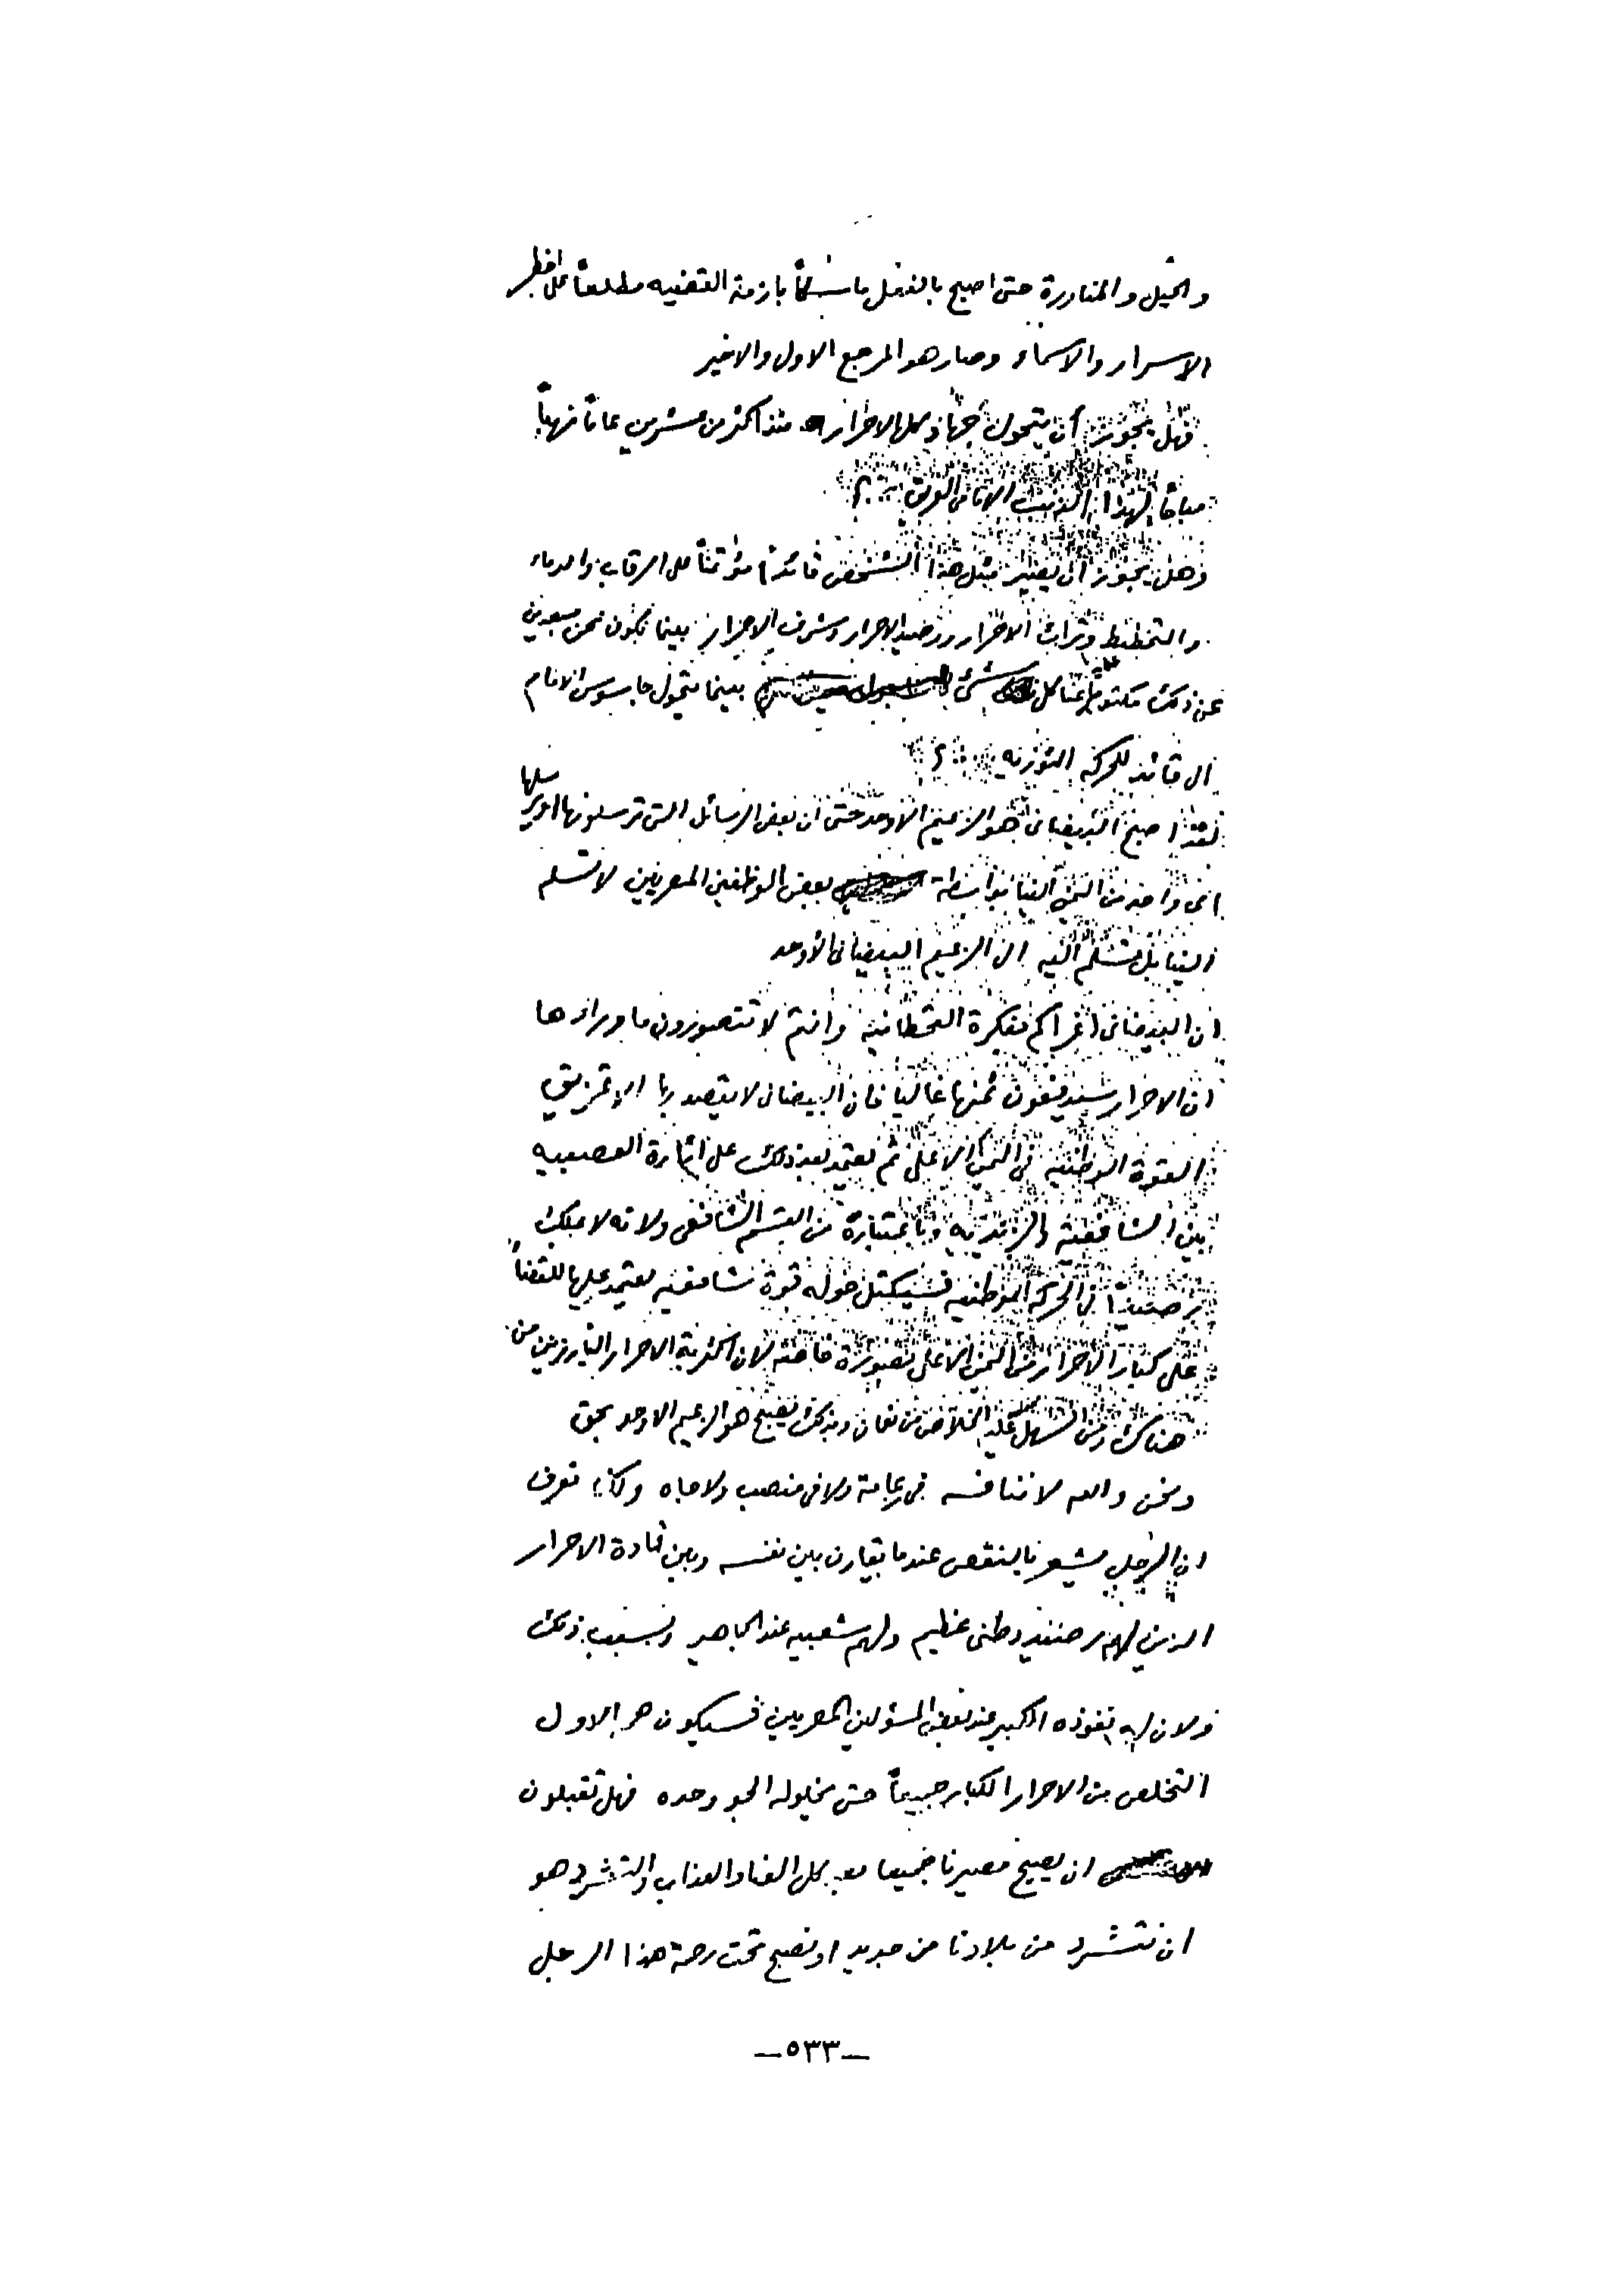 والحيل والمناورة حتى اصبح بالفعل ماسكاً بازمة القضيه مطلعاً على اخطر
الاسرار والاسماء وصار هو المرجع الاول والاخير
فهل يجوز أن يتحول جهاد كل الاحرار منذ اكثر من عشرين عاماً نهباً
مباحاً لهذا الذئب الافاق ؟
وهل يجوز ان يصير مثل هذا الشخص قائداً مؤتمناً على الرقاب والدماء
والتخطيط وتراث الاحرار ورصيد الاحرار وشرف الاحرار بينما نكون نحن مبعدين
عن ذلك مكتوم عنا كل شئ بينما يتحول جاسوس الامام
الى قائد للحركه الثوريه ؟
لقد اصبح البيضانى هو الزعيم الاوحد حتى ان بعض الرسائل التى ترسلونها او يرسلها
اى واحد من اليمن الينا بواسطة بعض الموظفين المصريين لا تسلم
الينا بل تسلم اليه الى الزعيم البيضانى الأوحد
ان البيضانى اغراكم بفكرة القحطانيه وانتم لا تتصورون ما وراءها
ان الاحرار سيدفعون ثمنها غاليا فان البيضانى لا يقصد بها الا تمزيق
القوة الوطنيه فى اليمن الاعلى ثم يعتمد بعد ذلك على اثارة العصبيه
بين الشافعيه والزيديه وباعتباره من القسم الشافعى ولانه لا يملك
رصيداً فى الحركه الوطنيه فسيكتل حوله قوة شافعيه يعتمد عليها للقضاء
على كبار الاحرار من اليمن الاعلى بصورة خاصه لان اكثرية الاحرار البارزين من
هناك ومن السهل عليه الخلاص من نعمان وبذلك يصبح هو الزعيم الاوحد بحق
ونحن والله لا ننافسه فى زعامة ولا فى منصب ولا جاه ولكنا نعرف
ان الرجل يشعر بالنقص عندما يقارن بين نفسه وبين قادة الاحرار
الذين لهم رصيد وطنى عظيم ولهم شعبيه عند الجماهير وبسبب ذلك
ولان له نفوذه الكبير عند بعض المسؤلين المصريين فسيكون همه الاول
التخلص من الاحرار الكبار جميعاً حتى يخلو له الجو وحده فهل تقبلون
ان يصبح مصيرنا جميعا بعد كل العناء والعذاب والتشرد هو
ان نتشرد من بلادنا من جديد او نصبح تحت رحمة هذا الرجل
—٥٣٣—